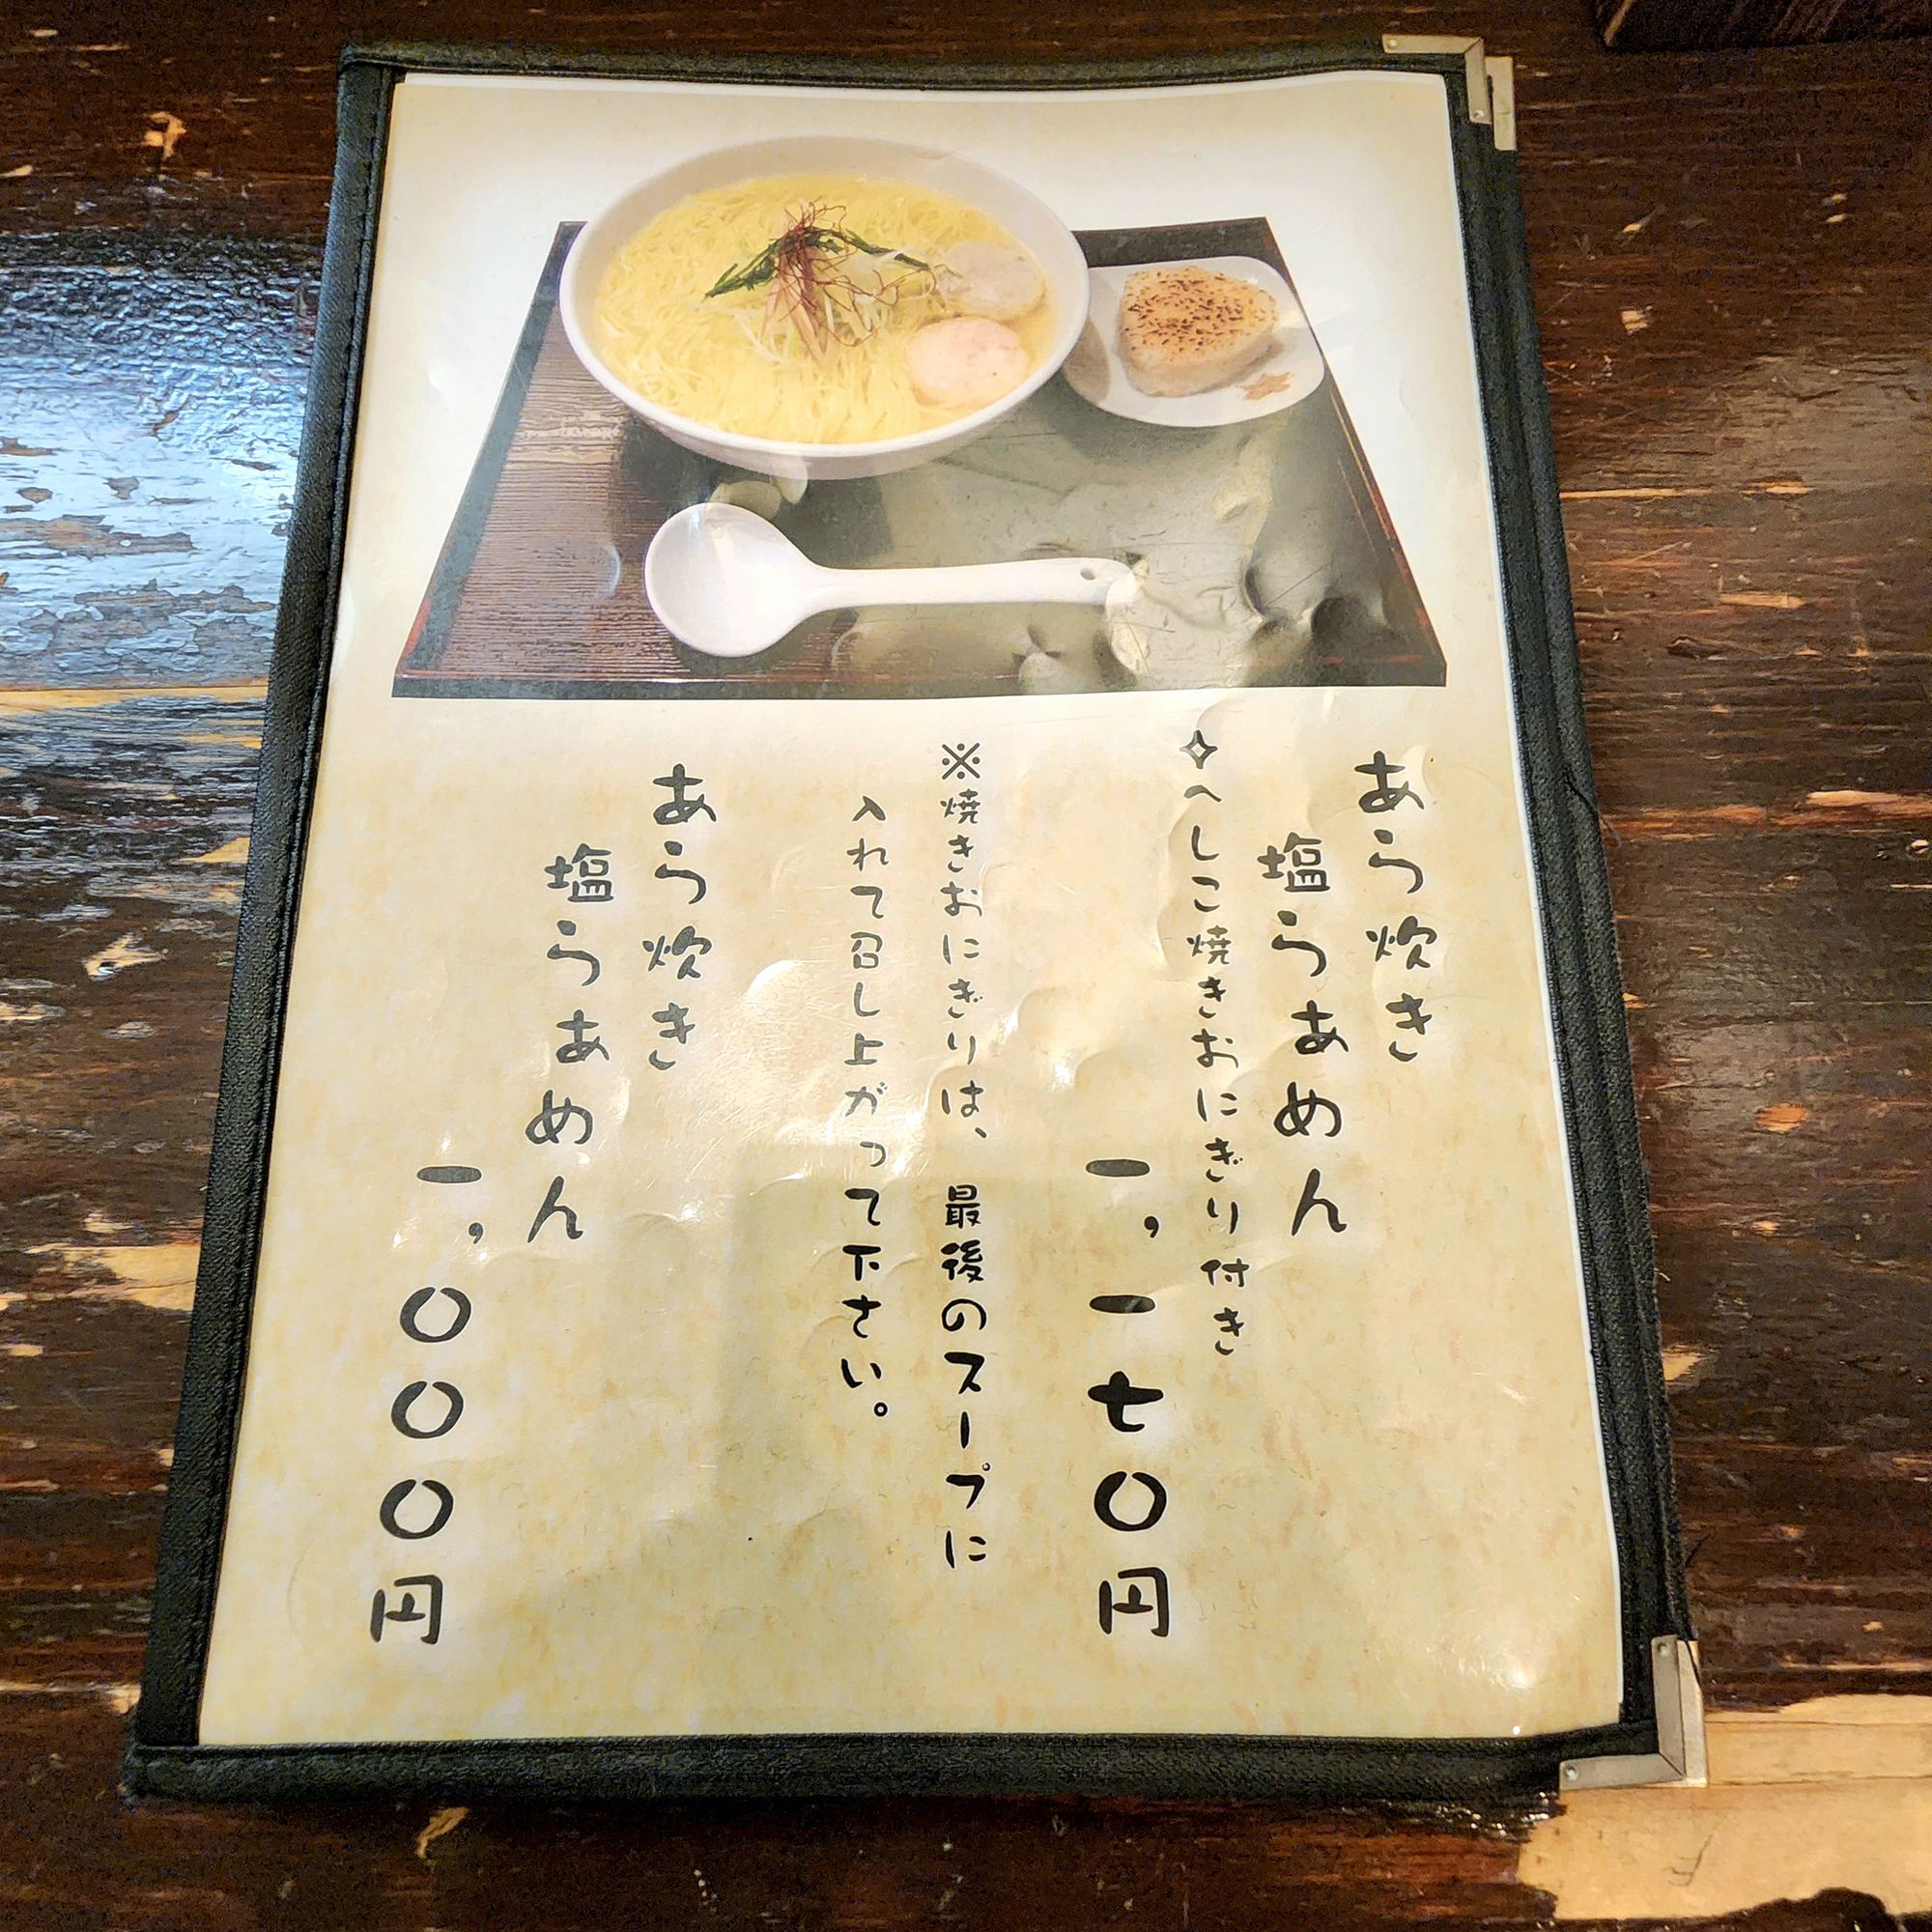 あら炊き
塩らぁめん
✧へしこ焼きおにぎり付き
一，一七〇円
※焼きおにぎりは、最後のスープに
入れて召し上がって下さい。
あら炊き
塩らぁめん
一，〇〇〇円